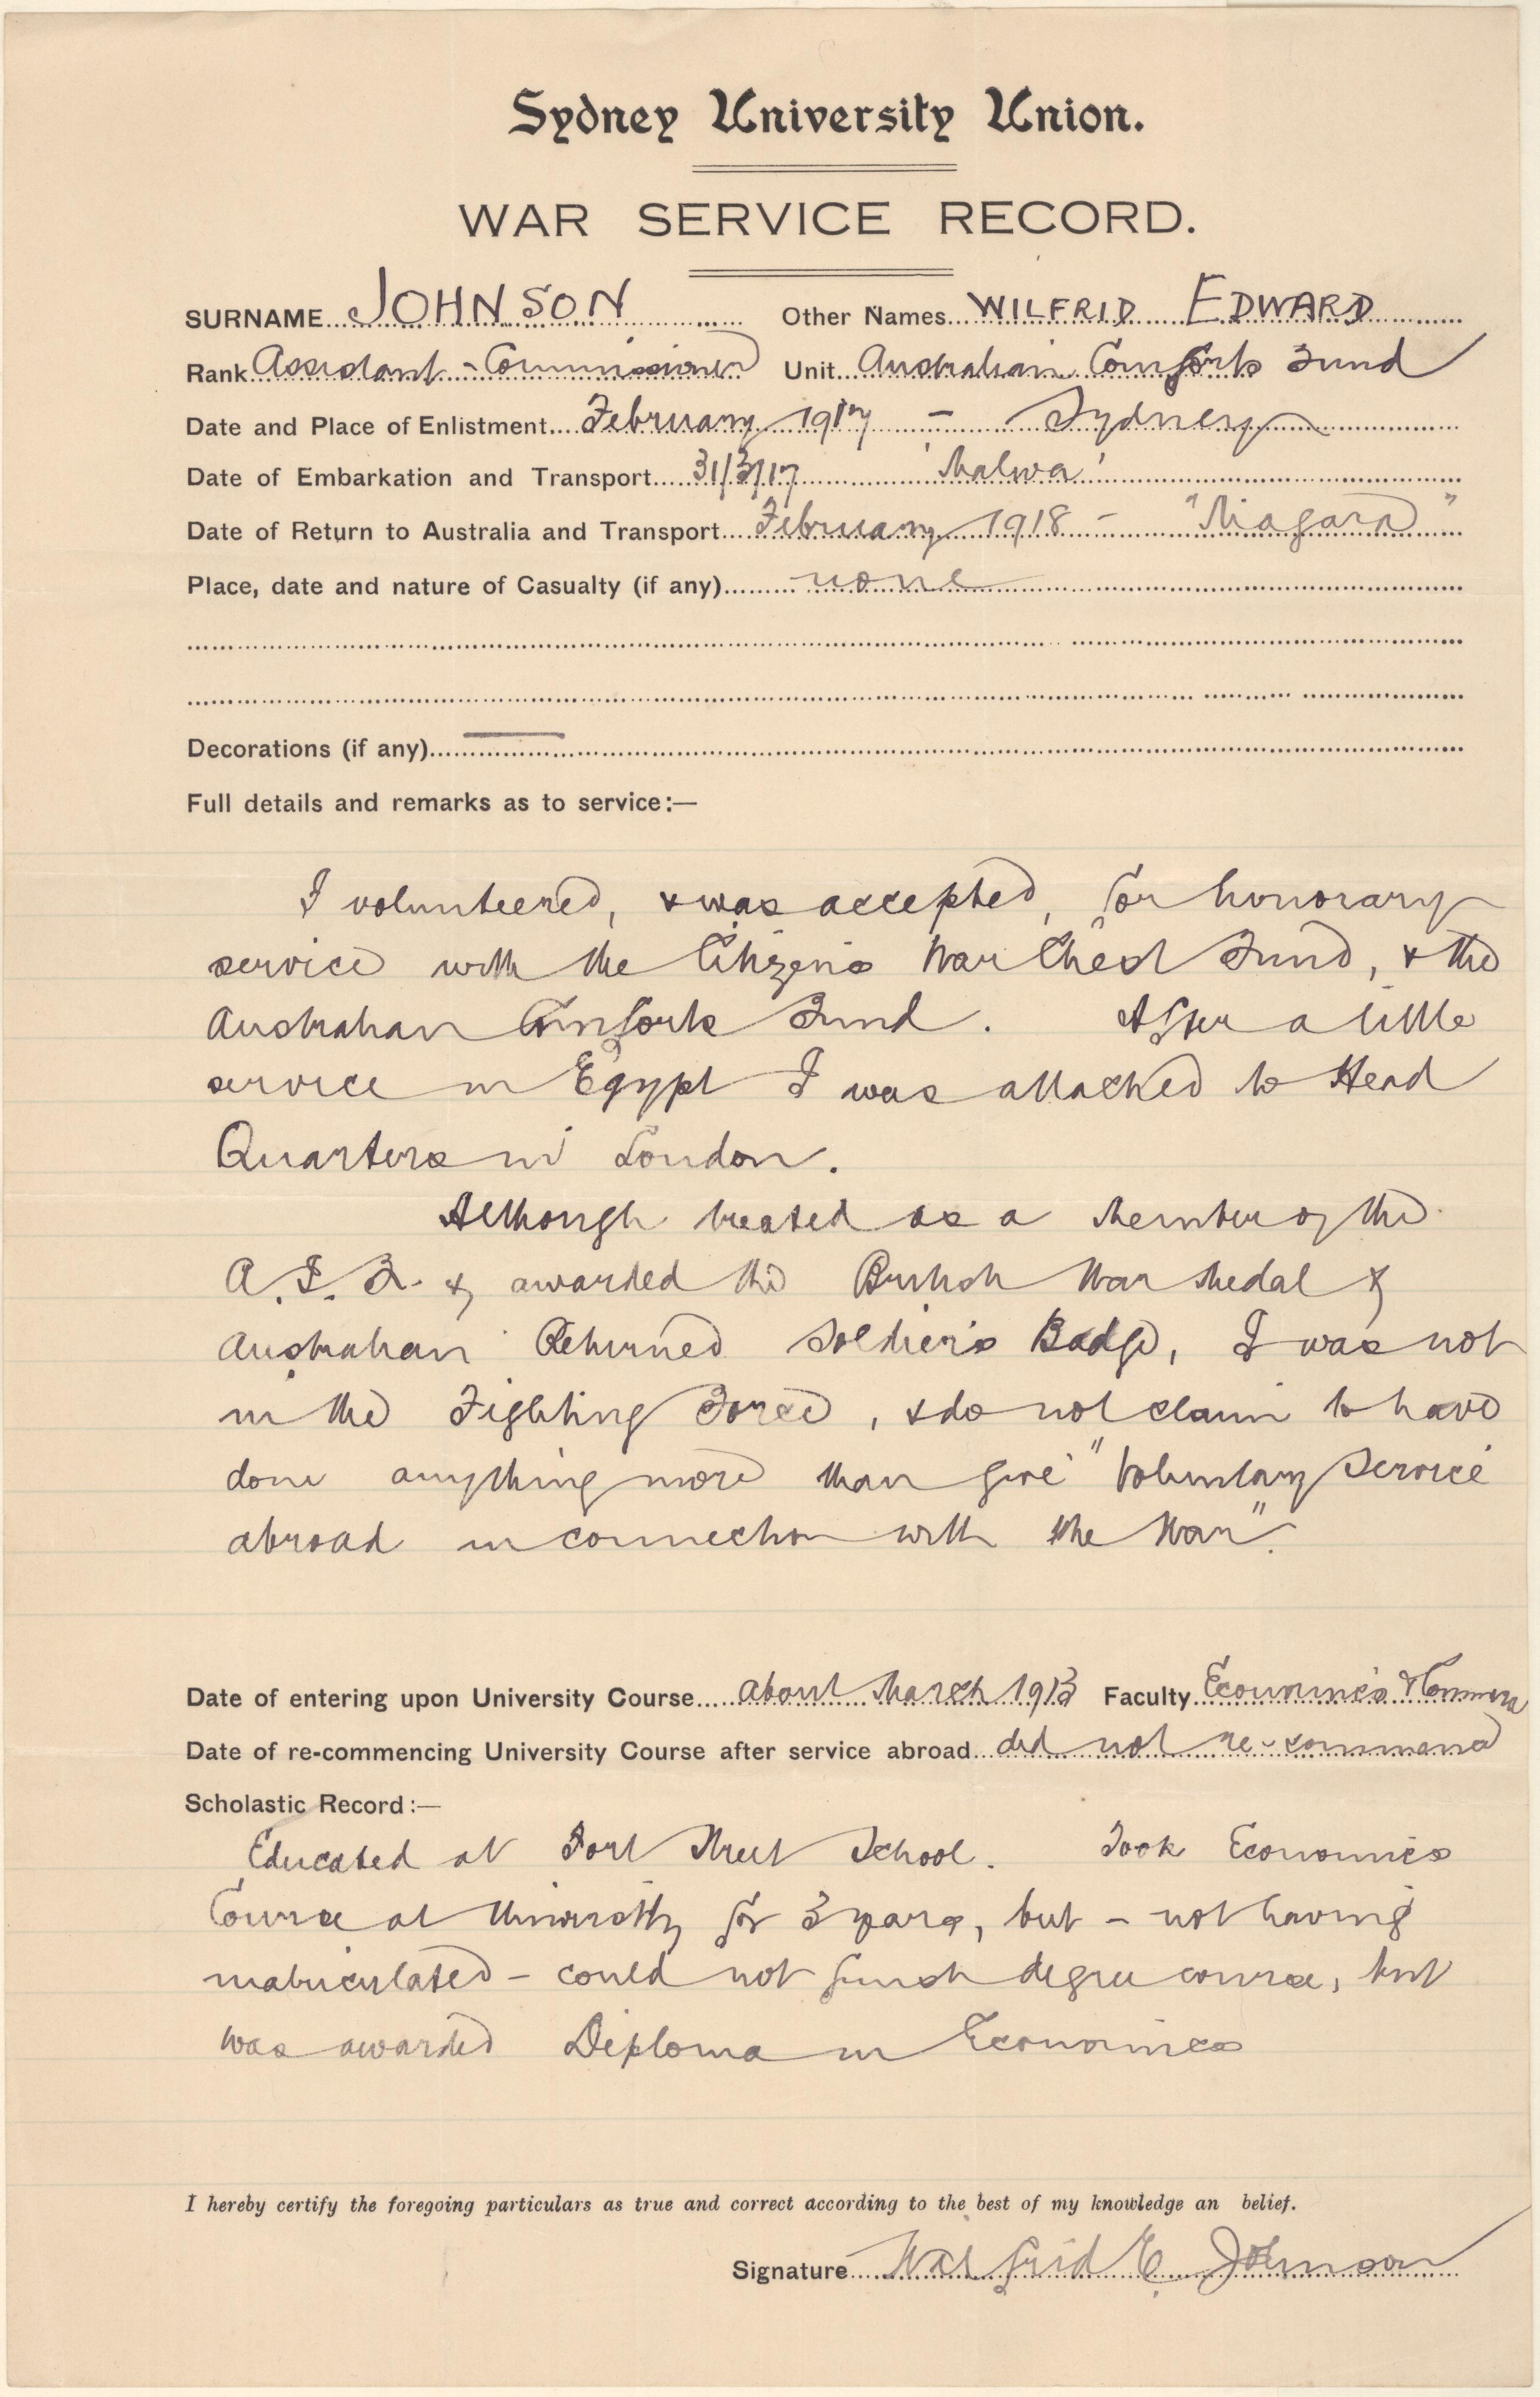 Sydney University Union.
WAR SERVICE RECORD.
SURNAME JOHNSON Other Names WILFRID EDWARD
Rank Assistant-Commissioner Unit Australian Comforts Fund
Date and Place of Enlistment February 1917 - Sydney
Date of Embarkation and Transport 31/3/17 'Malwa'
Date of Return to Australia and Transport February 1918 - "Niagara"
Place, date and nature of Casualty (if any) none
Decorations (if any) —
Full details and remarks as to service:—
I volunteered, & was accepted, for honorary
service with the Citizen's War Chest Fund, & the
Australian Comforts Fund. After a little
service in Egypt I was attached to Head
Quarters in London.
Although treated as a Member of the
A.I.F. & awarded the British War Medal &
Australian Returned Soldier's Badge, I was not
in the Fighting Force, & do not claim to have
done anything more than give "Voluntary Service
abroad in connection with the War".
Date of entering upon University Course about March 1913 Faculty Economics & Commerce
Date of re-commencing University Course after service abroad did not re-commence
Scholastic Record:—
Educated at Fort Street School. Took Economics
Course at University for 3 years, but - not having
matriculated - could not finish degree course, but
was awarded Diploma in Economics
I hereby certify the foregoing particulars as true and correct according to the best of my knowledge an belief.
Signature Wilfrid E. Johnson